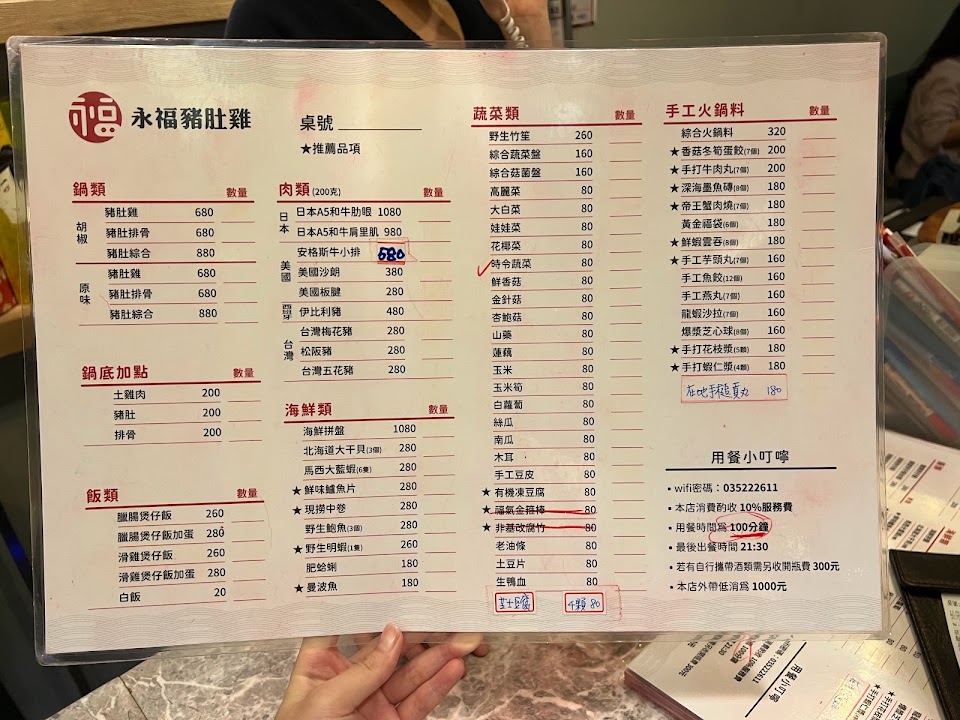 永福豬肚雞
桌號
★推薦品項
鍋類 數量
胡椒
豬肚雞 680
豬肚排骨 680
豬肚綜合 880
原味
豬肚雞 680
豬肚排骨 680
豬肚綜合 880
鍋底加點 數量
土雞肉 200
豬肚 200
排骨 200
飯類 數量
臘腸煲仔飯 260
臘腸煲仔飯加蛋 280
滑雞煲仔飯 260
滑雞煲仔飯加蛋 280
白飯 20
肉類(200克) 數量
日本
日本A5和牛肋眼 1080
日本A5和牛肩里肌 980
美國
安格斯牛小排 580
美國沙朗 380
美國板腱 280
西班牙
伊比利豬 480
台灣
台灣梅花豬 280
松阪豬 280
台灣五花豬 280
海鮮類 數量
海鮮拼盤 1080
北海道大干貝(3個) 280
馬西大藍蝦(6隻) 280
★鮮味鱸魚片 280
★現撈中卷 280
野生鮑魚(3個) 280
★野生明蝦(1隻) 260
肥蛤蜊 180
★曼波魚 180
蔬菜類 數量
野生竹笙 260
綜合蔬菜盤 160
綜合菇菌盤 160
高麗菜 80
大白菜 80
娃娃菜 80
花椰菜 80
時令蔬菜 80
鮮香菇 80
金針菇 80
杏鮑菇 80
山藥 80
蓮藕 80
玉米 80
玉米筍 80
白蘿蔔 80
絲瓜 80
南瓜 80
木耳 80
手工豆皮 80
★有機凍豆腐 80
★福氣金箍棒 80
★非基改腐竹 80
老油條 80
土豆片 80
生鴨血 80
芝士豆腐 4顆 80
手工火鍋料 數量
綜合火鍋料 320
★香菇冬筍蛋餃(7個) 200
★手打牛肉丸(7個) 200
★深海墨魚磚(8個) 180
★帝王蟹肉燒(7個) 180
黃金福袋(6個) 180
★鮮蝦雲吞(8個) 180
★手工芋頭丸(7個) 160
手工魚餃(12個) 160
手工燕丸(7個) 160
龍蝦沙拉(7個) 160
爆漿芝心球(8個) 160
★手打花枝漿(5顆) 180
★手打蝦仁漿(4顆) 180
在地手搥貢丸 180
用餐小叮嚀
▪wifi密碼：035222611
▪本店消費酌收 10%服務費
▪用餐時間為 100分鐘
▪最後出餐時間 21:30
▪若有自行攜帶酒類需另收開瓶費 300元
▪本店外帶低消為 1000元
用餐小叮嚀